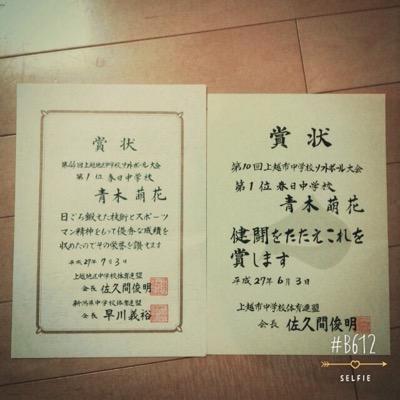 賞状
第46回上越地区中学校ソフトボール大会
第1位 春日中学校
青木 萌花
日ごろ鍛えた技術とスポーツ
マン精神をもって優秀な成績を
収めたのでその栄誉を讃えます
平成27年7月3日
上越地区中学校体育連盟
会長 佐久間俊明
新潟県中学校体育連盟
会長 早川義裕
賞状
第10回上越市中学校ソフトボール大会
第1位 春日中学校
青木 萌花
健闘をたたえこれを
賞します
平成27年6月3日
上越市中学校体育連盟
会長 佐久間俊明
#B612
SELFIE